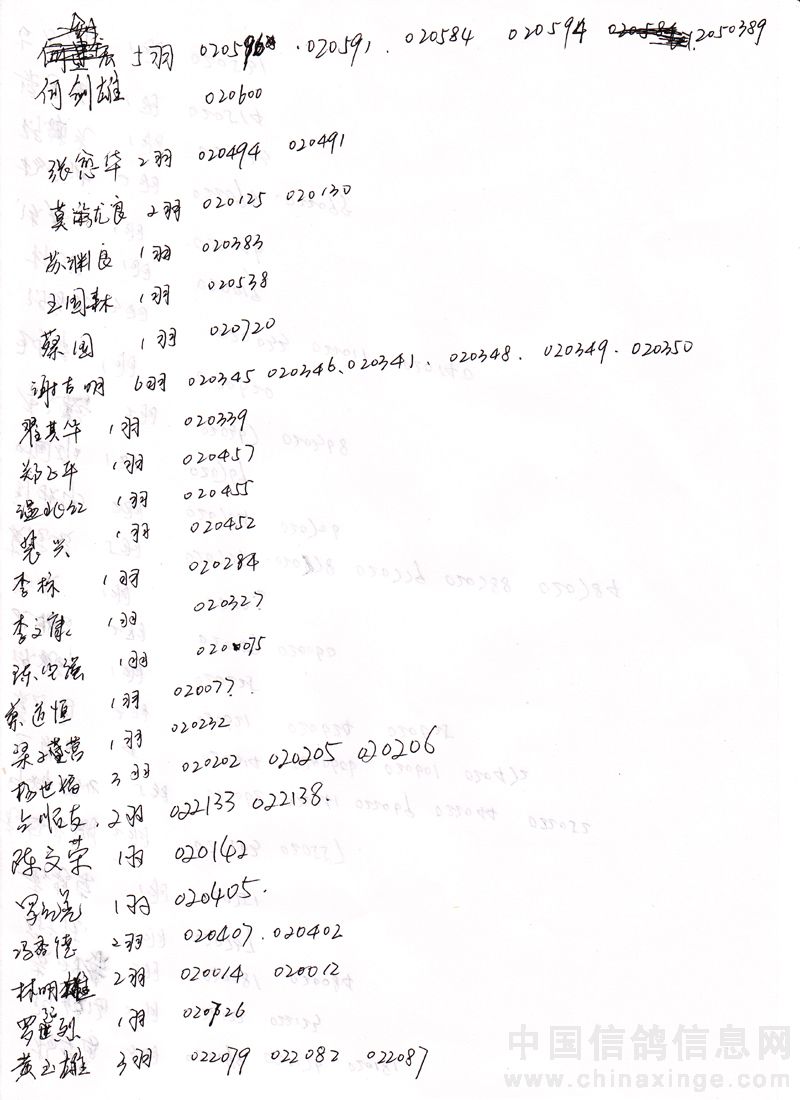 5羽 020591 020584 020594 2050389
何剑雄 020600
张恋华 2羽 020494 020491
莫 良 2羽 020125 020130
苏渊良 1羽 020383
王国森 1羽 020538
蔡国 1羽 020720
谢古明 6羽 020345 020346、020341. 020348. 020349. 020350
翟其华 1羽 020339
郑 华 1羽 020457
温 1羽 020455
兴 1羽 020452
李栋 1羽 020284
李文康 1羽 020327
陈 强 1羽
蔡道恒 1羽 020077
梁 营 1羽 020232
杨世福 3羽 020202 020205 020206
顺友. 2羽 022133 022138.
陈文荣 1羽 020142
罗 1羽 020405.
冯 德 2羽 020407. 020402
林明雄 2羽 020014 020012
罗 烈 1羽
黄玉雄 3羽 022079 022082 022087
中国信鸽信息网
www.chinaxinge.com